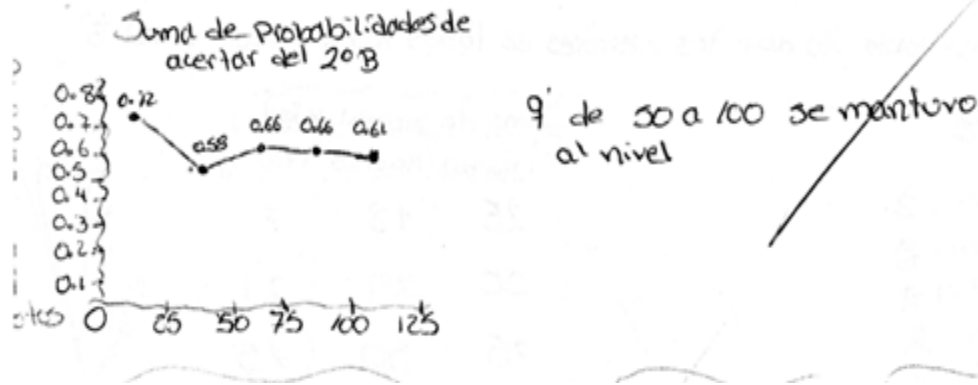 Suma de Probabilidades de
acertar del 2º B
0.8
0.7
0.6
0.5
0.4
0.3
0.2
0.1
0.72
0.58
0.66
0.66
0.61
0 25 50 75 100 125
q' de 50 a 100 se mantuvo
al nivel